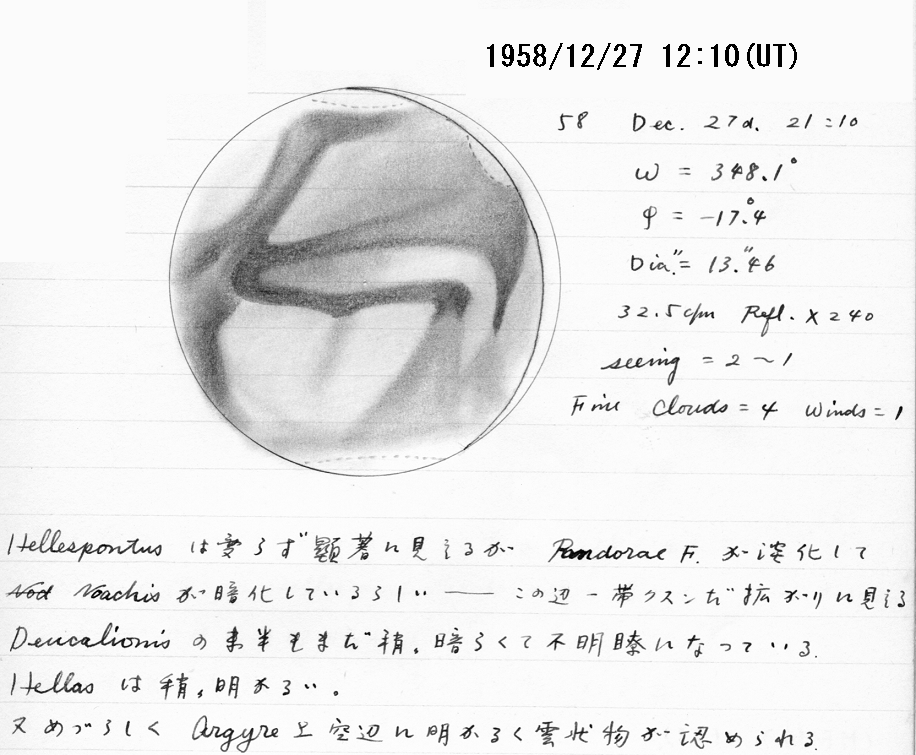 1958/12/27 12:10(UT)
58 Dec. 27d. 21:10
ω = 348.1°
φ = -17.°4
Dia. = 13."46
32.5cm Refl. × 240
seeing = 2 ~ 1
Fine Clouds = 4 Winds = 1
Hellespontus は変らず顕著に見えるが Pandorae F. が淡化して
Noachis が暗化しているらしい —— この辺一帯クスンだ拡がりに見える
Deucalionis の東半もまだ稍々暗らくて不明瞭になっている.
Hellas は稍々明かるい。
又めづらしく Argyre 上空辺に明かるく雲状物が認められる.